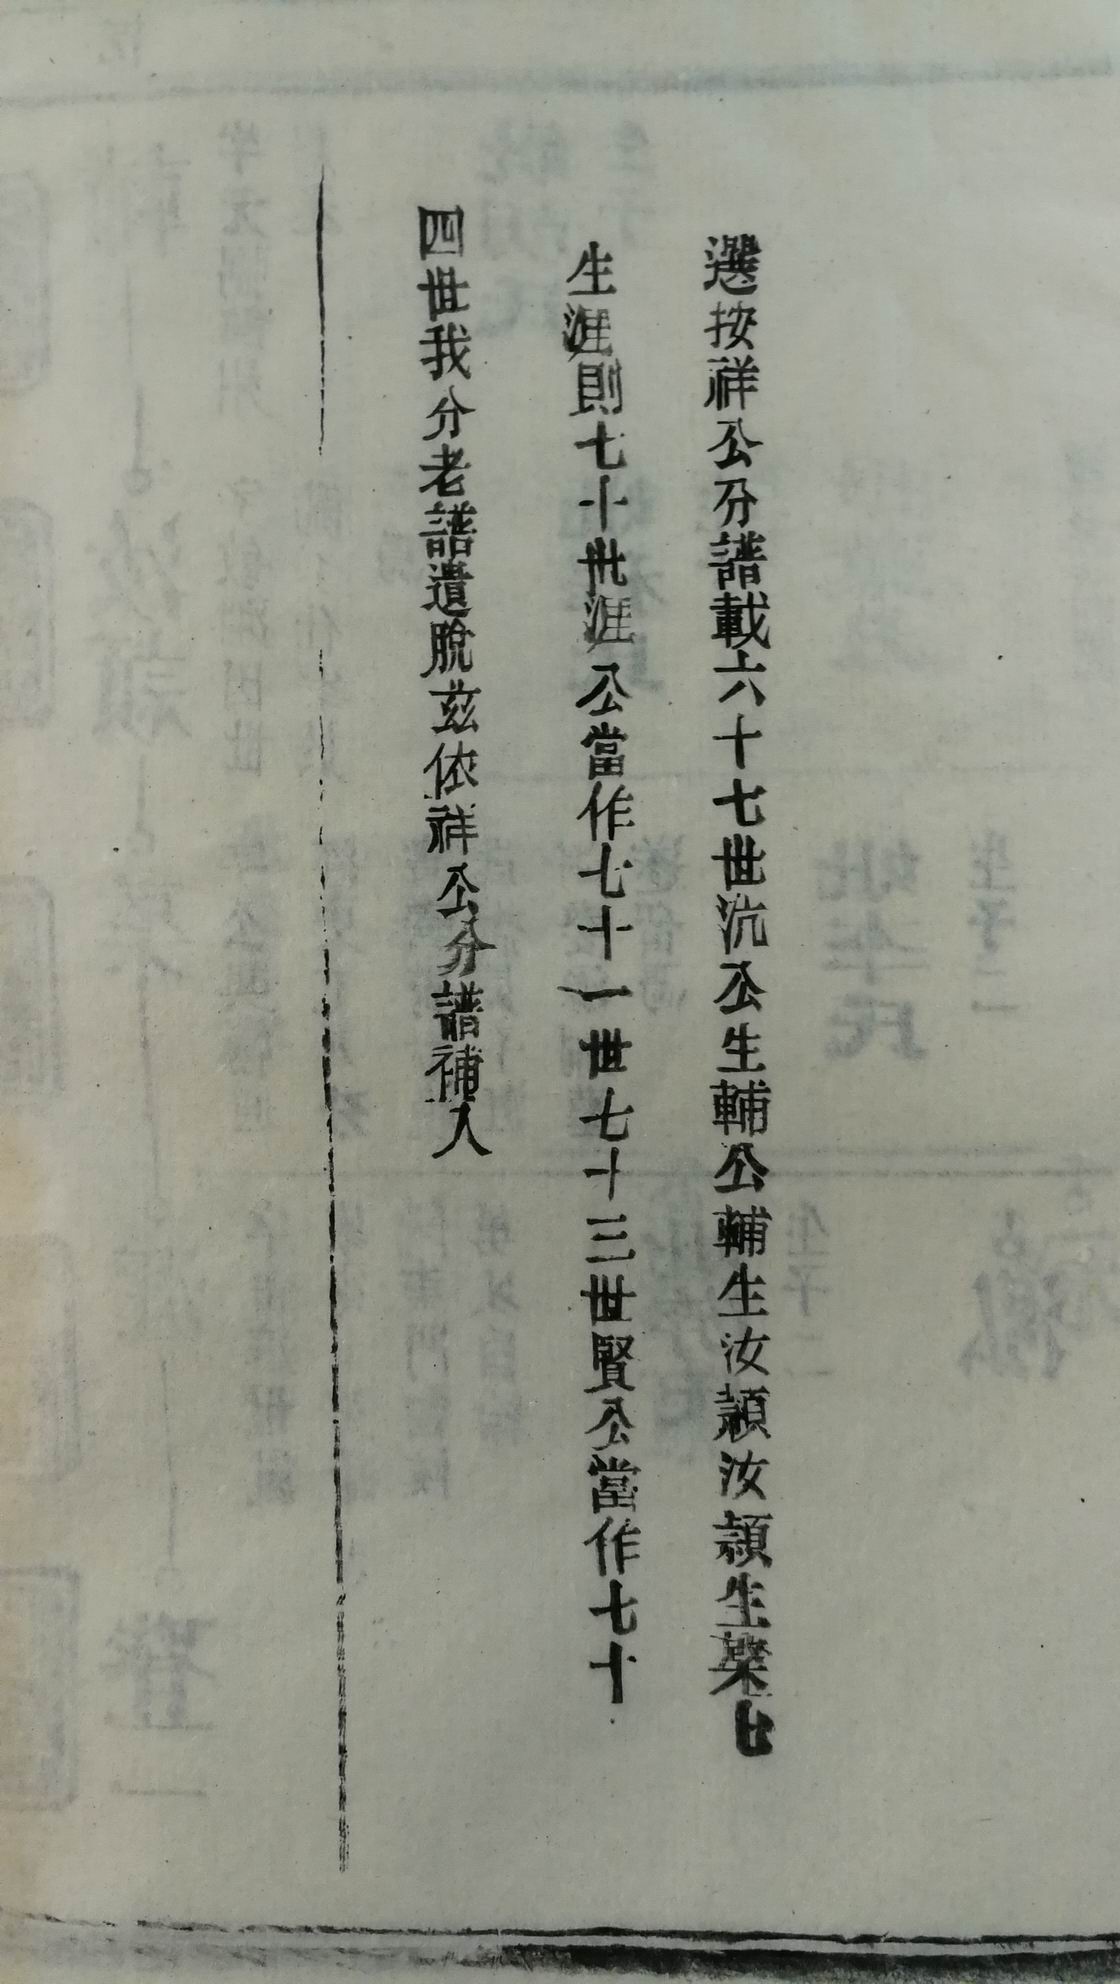 選按祥公分譜載六十七世沆公生輔公輔生汝頴汝頴生琹七
生漄則七十世漄公當作七十一世七十三世賢公當作七十
四世我分老譜遺脫茲依祥公分譜補入